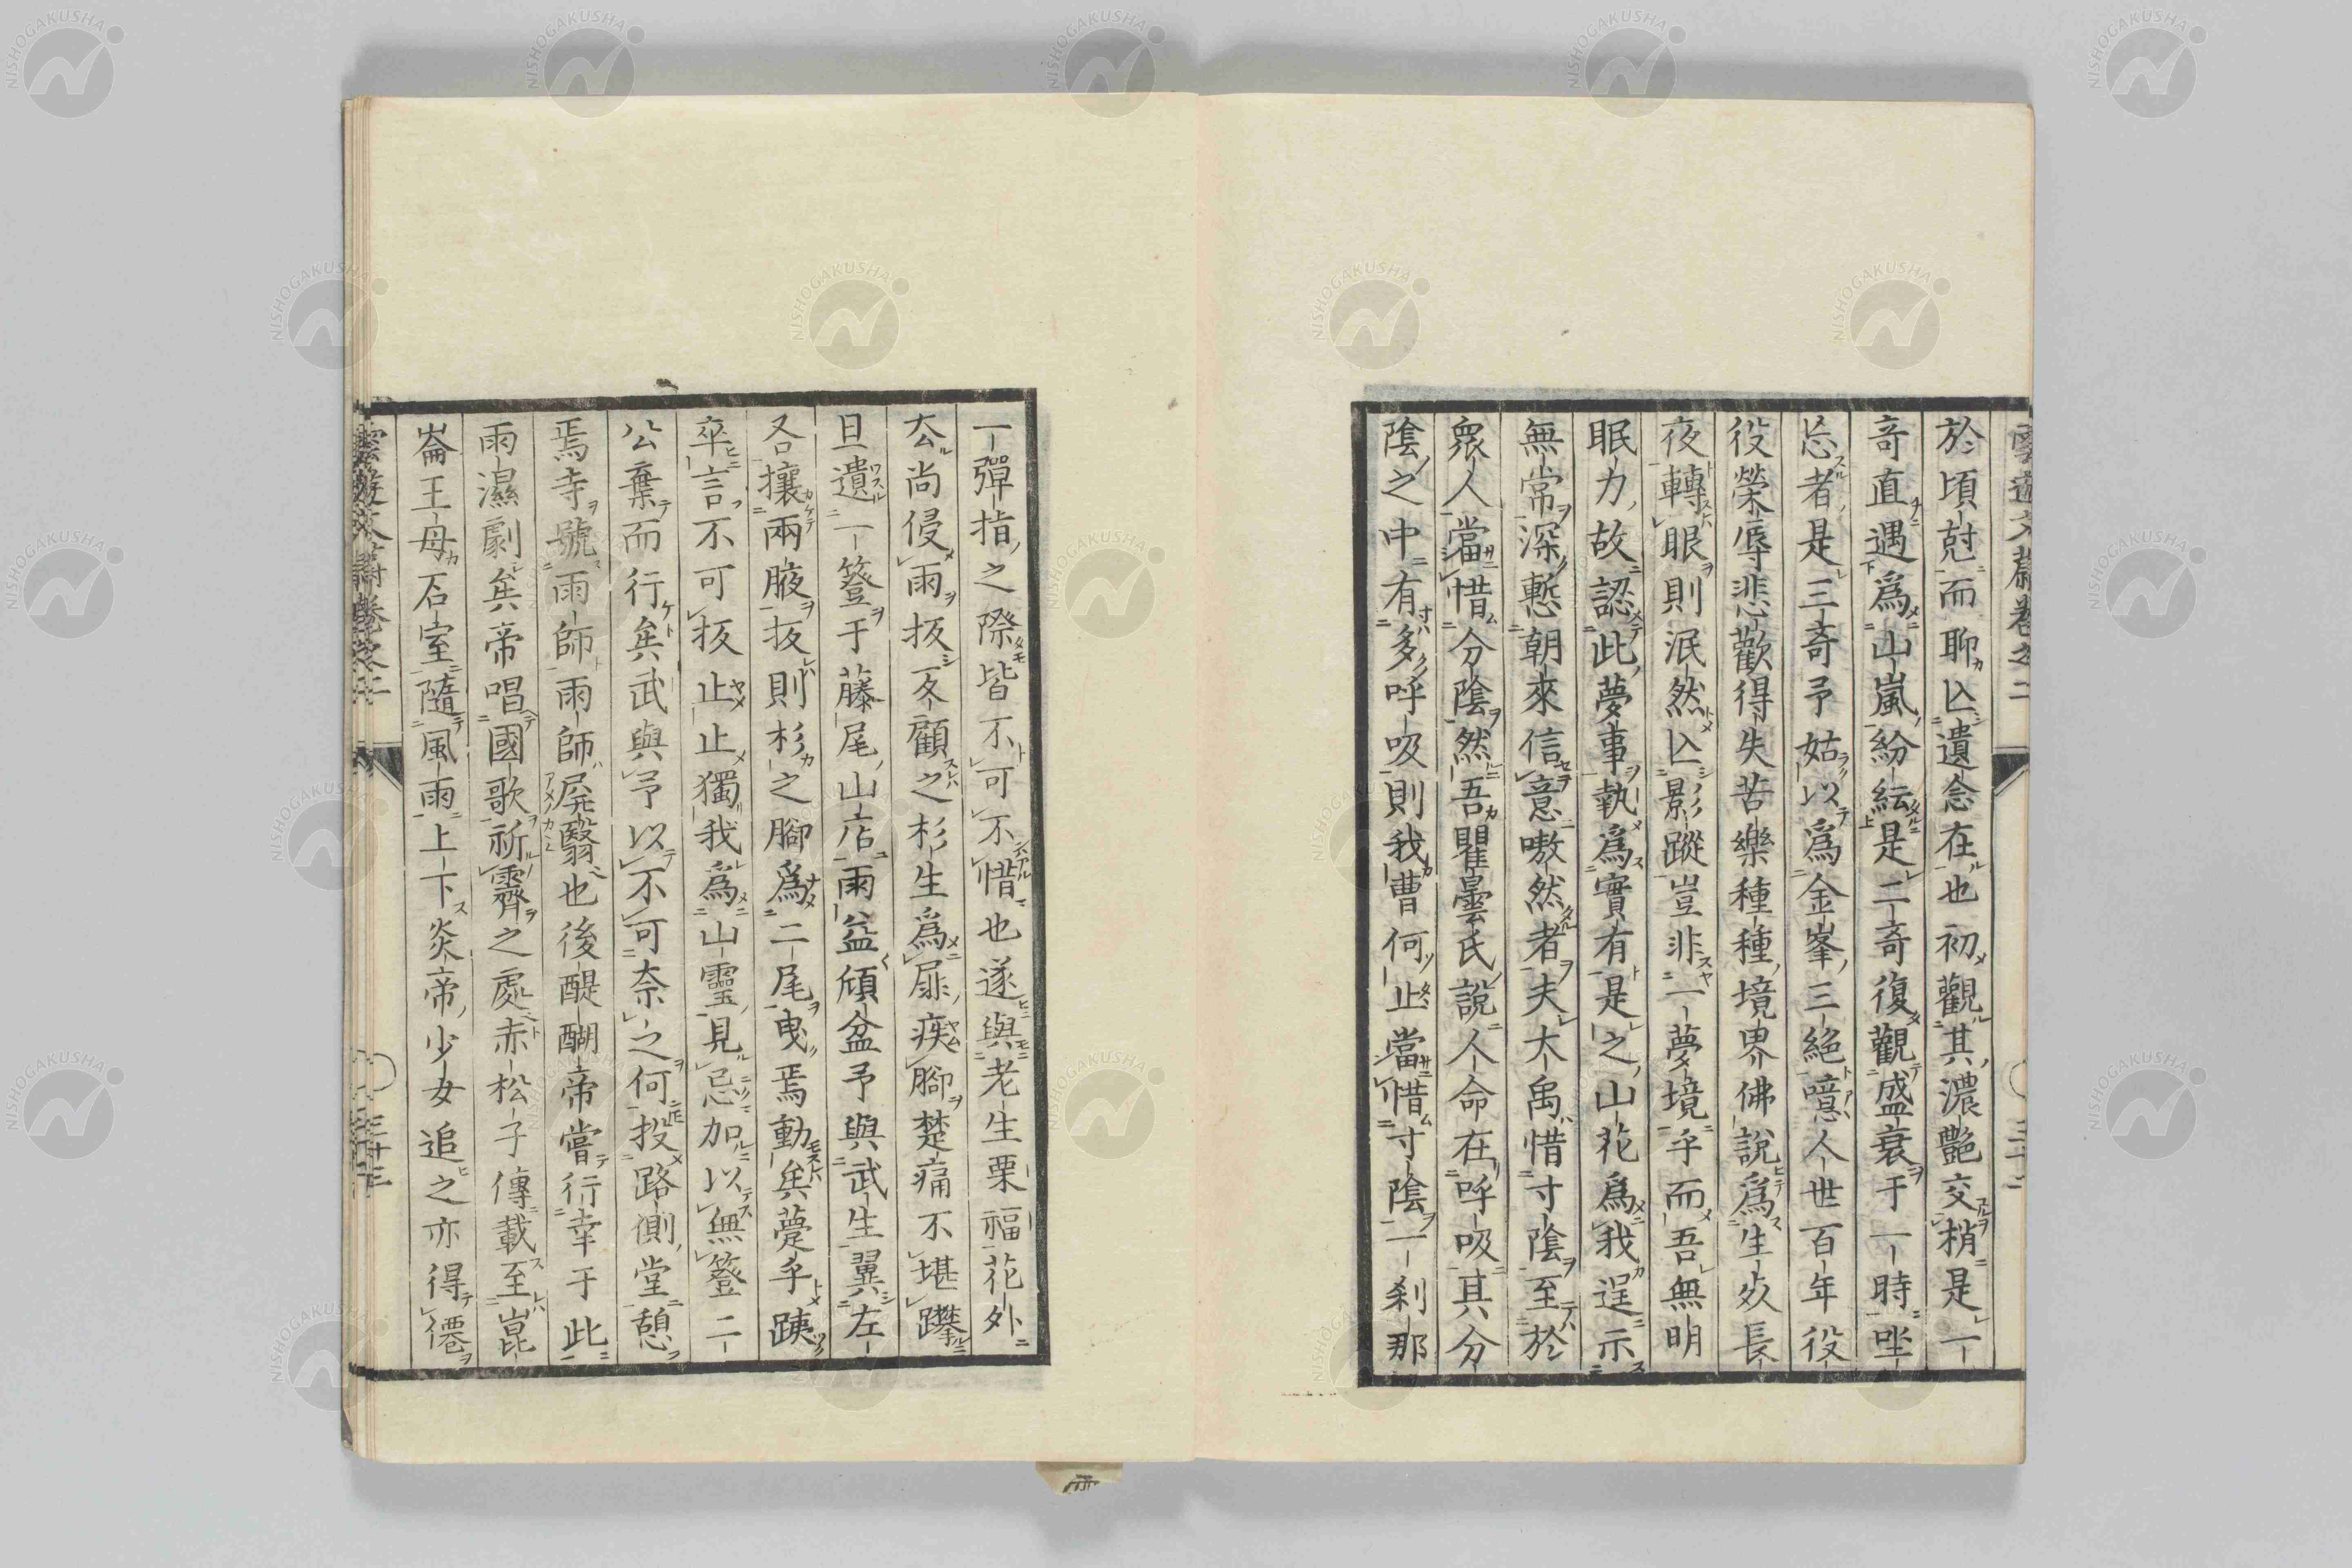 於頃尅而聊亾遺念在也初觀其濃艷交梢是一
奇直遇爲山嵐紛紜是二奇復觀盛衰于一時唑
忘者是三奇予姑以爲金峯三絕噫人世百年役
役榮辱悲歡得失苦樂種種境界佛說爲生死長
夜轉眼則泯然亾影蹤豈非一夢境乎而吾無明
眠力故認此夢事執爲實有是之山花爲我逞示
無常深慙朝來信意嗷然者夫大禹惜寸陰至於
衆人當惜分陰然吾瞿曇氏說人命在呼吸其分
陰之中有多呼吸則我曹何止當惜寸陰一剎那
一彈指之際皆不可不惜也遂與老生栗福花外
厺尚侵雨扳
顧之杉生爲屝疾腳楚痛不堪躋攀
旦遺一簦于藤尾山店雨益傾盆予與武生翼左
各攘兩腋扳則杉之腳爲二尾曳焉動矣躄乎踈
卒言不可扳止止獨我爲山靈見忌加以無簦二
公棄而行矣武與予以不可奈之何投路側堂憩
焉寺號雨師雨師屏翳也後醍醐帝嘗行幸于此
雨濕劇矣帝唱國歌祈霽之處赤松子傳載至崑
崙王母石室隨風雨上下炎帝少女追之亦得僊
三十三